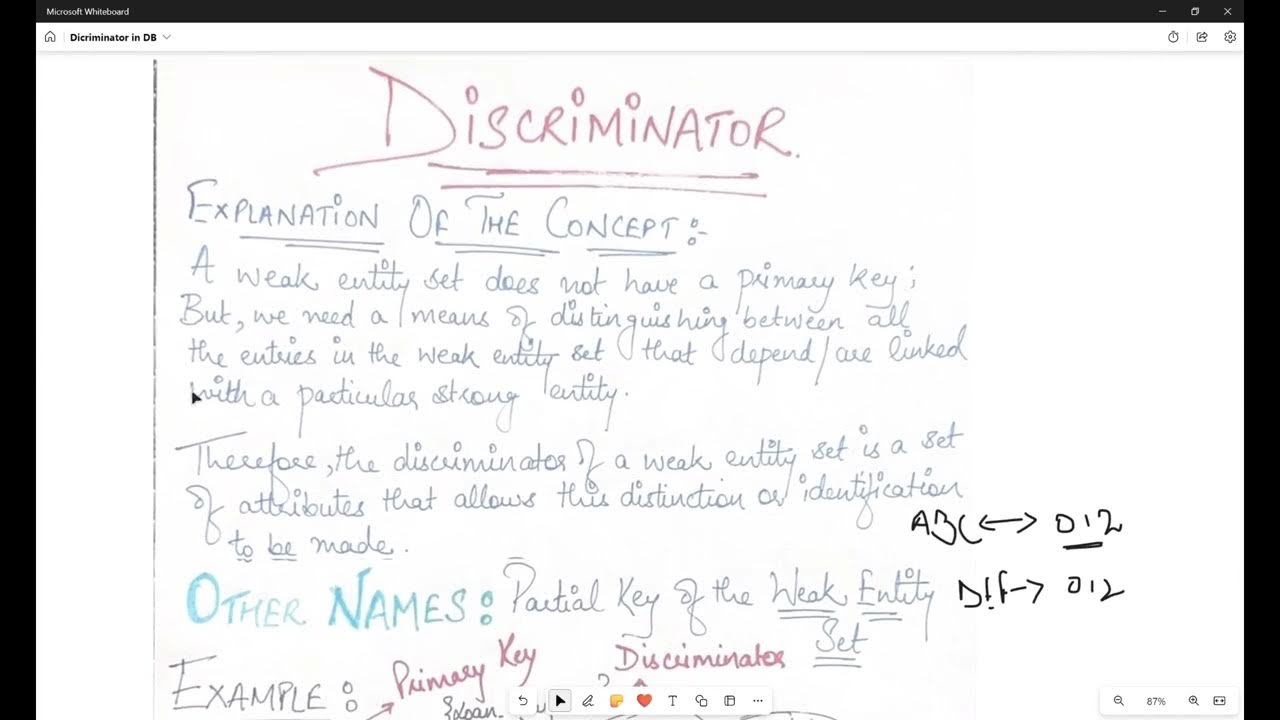 Microsoft Whiteboard
Dicriminator in DB
DISCRIMINATOR.
EXPLANATION OF THE CONCEPT:-
A weak entity set does not have a primary key;
But, we need a means of distinguishing between all
the entries in the weak entity set that depend/are linked
with a particular strong entity.
Therefore, the discriminator of a weak entity set is a set
of attributes that allows this distinction or identification
to be made.
ABC <-> 012
DEF -> 012
OTHER NAMES: Partial Key of the Weak Entity
Set
EXAMPLE: Primary Key Discriminator
87%